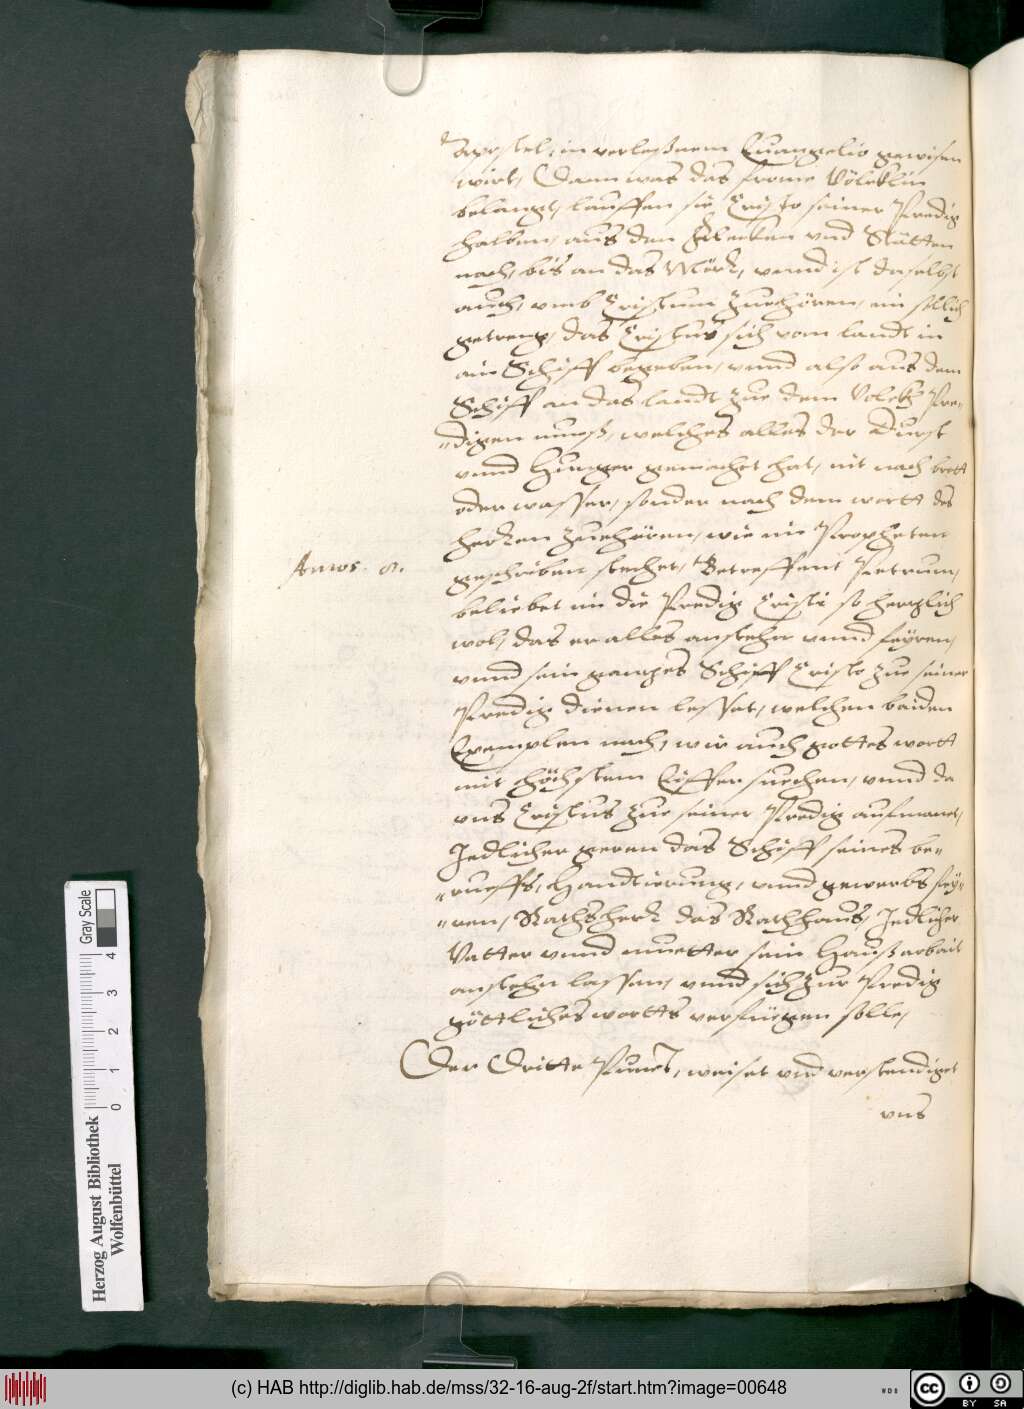 Apostel, in verleßnem Euangelio gewisen
wirt, Dann was das frome Völcklin
belangt, lauffen sie Cristo seiner Predig
halben, aus den Flecken vnd Stätten
nach, bis an das Mörr, vnnd ist daselbst
auch, vmb Cristum Zuehören, ein sollich
getreng, das Cristus sich vom landt in
ain Schiff begeben, vnnd also aus dem
Schiff an das landt Zue dem Volckh Pre-
-digen muess, welches alles der Durst
vnnd Hunger gemachet hat, nit nach brott
oder wasser, sonder nach dem wortt des
herren Zuehören, wie im Propheten
Amos. 8.
geschriben stehet, Betreffent Petrum,
beliebet im die Predig Cristi so hertzlich
wol, das er alles anstehn vnnd feyren,
vnnd sein gantzes Schiff Cristo Zue seiner
Predig dienen lesset, welchen baiden
Exemplen nach, wir auch gottes wortt
mit höchstem Eiffer suechen, vnnd da
vns Cristus Zue seiner Predig aufmanet,
Jedlicher geren das Schiff seines be-
-rueffs, Handtierung, vnnd gewerbs fey-
-ren, Rathsherr das Rathhaus, Jedlicher
Vatter vnnd muetter sein Haußarbait
anstehn lassen, vnnd sich Zur Predig
göttliches wortts verfüegen solle,
Der Dritte Punct, weiset vnd verstendiget
vns
Herzog August Bibliothek
Wolfenbüttel
0 1 2 3 4
Gray Scale
(c) HAB http://diglib.hab.de/mss/32-16-aug-2f/start.htm?image=00648
WDB
cc BY SA